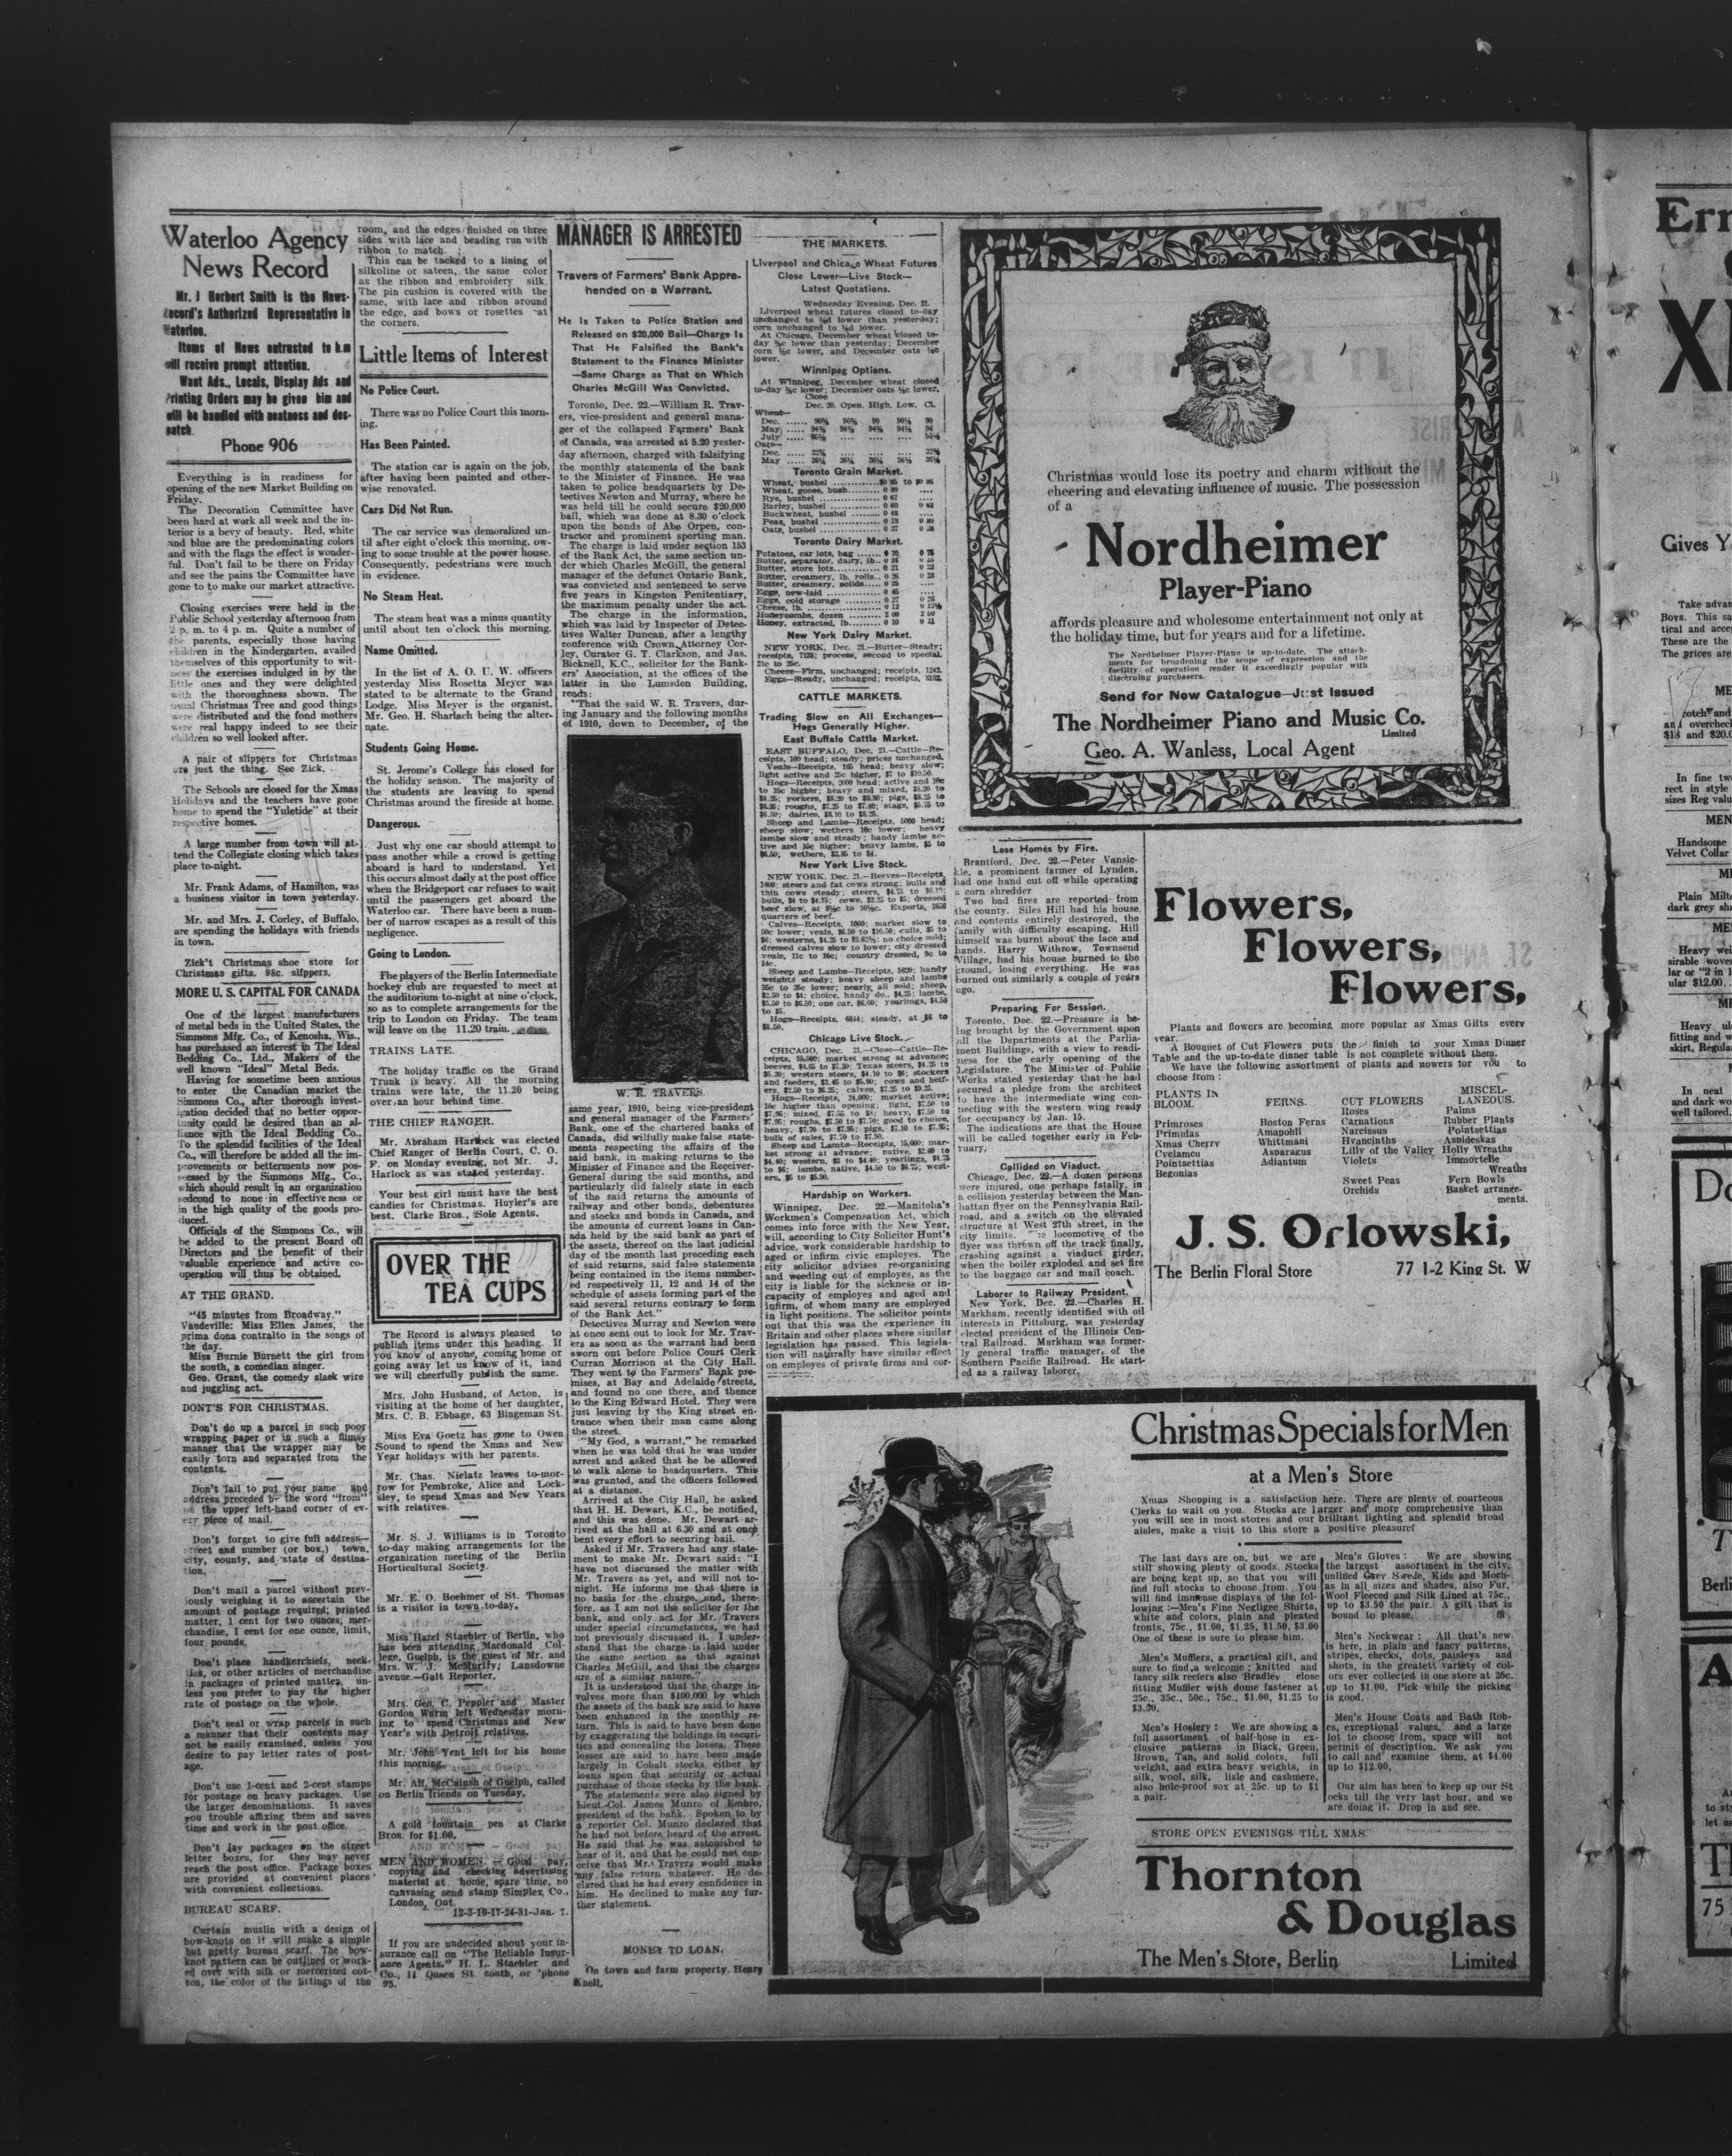 Waterloo Agency
News Record
Mr. J Herbert Smith is the News-
Record's Authorized Representative in
Waterloo.
Items of News entrusted to him
will receive prompt attention.
Want Ads., Locals, Display Ads and
Printing Orders may be given him and
will be handled with neatness and des-
patch.
Phone 906
Everything is in readiness for
opening of the new Market Building on
Friday.
The Decoration Committee have
been hard at work all week and the in-
terior is a bevy of beauty. Red, white
and blue are the predominating colors
and with the flags the effect is wonder-
ful. Don't fail to be there on Friday
and see the pains the Committee have
gone to to make our market attractive.
Closing exercises were held in the
Public School yesterday afternoon from
2 p. m. to 4 p. m. Quite a number of
the parents, especially those having
children in the Kindergarten, availed
themselves of this opportunity to wit-
ness the exercises indulged in by the
little ones and they were delighted
with the thoroughness shown. The
usual Christmas Tree and good things
were distributed and the fond mothers
were real happy indeed to see their
children so well looked after.
A pair of slippers for Christmas
are just the thing. See Zick.
The Schools are closed for the Xmas
Holidays and the teachers have gone
home to spend the "Yuletide" at their
respective homes.
A large number from town will at-
tend the Collegiate closing which takes
place to-night.
Mr. Frank Adams, of Hamilton, was
a business visitor in town yesterday.
Mr. and Mrs. J. Corley, of Buffalo,
are spending the holidays with friends
in town.
Zick't Christmas shoe store for
Christmas gifts. 98c. slippers.
MORE U. S. CAPITAL FOR CANADA
One of the largest manufacturers
of metal beds in the United States, the
Simmons Mfg. Co., of Kenosha, Wis.,
has purchased an interest in The Ideal
Bedding Co., Ltd., Makers of the
well known "Ideal" Metal Beds.
Having for sometime been anxious
to enter the Canadian market the
Simmons Co., after thorough invest-
igation decided that no better oppor-
tunity could be desired than an al-
liance with the Ideal Bedding Co.,
To the splendid facilities of the Ideal
Co., will therefore be added all the im-
provements or betterments now pos-
sessed by the Simmons Mfg., Co.,
which should result in an organization
sedcond to none in effectiveness or
in the high quality of the goods pro-
duced.
Officials of the Simmons Co., will
be added to the present Board ofl
Directors and the benefit of their
valuable experience and active co-
operation will thus be obtained.
AT THE GRAND.
"45 minutes from Broadway."
Vaudeville: Miss Ellen James, the
prima dona contralto in the songs of
the day.
Miss Burnie Burnett the girl from
the south, a comedian singer.
Geo. Grant, the comedy slack wire
and juggling act.
DONT'S FOR CHRISTMAS.
Don't do up a parcel in such poor
wrapping paper or in such a flimsy
manner that the wrapper may be
easily torn and separated from the
contents.
Don't fail to put your name and
address preceded by the word "from"
on the upper left-hand corner of ev-
ery piece of mail.
Don't forget to give full address—
street and number (or box,) town,
city, county, and state of destina-
tion.
Don't mail a parcel without prev-
iously weighing it to ascertain the
amount of postage required; printed
matter, 1 cent for two ounces; mer-
chandise, 1 cent for one ounce, limit,
four pounds.
Don't place handkerchiefs, neck-
ties, or other articles of merchandise
in packages of printed matter, un-
less you prefer to pay the higher
rate of postage on the whole.
Don't seal or wrap parcels in such
a manner that their contents may
not be easily examined, unless you
desire to pay letter rates of post-
age.
Don't use 1-cent and 2-cent stamps
for postage on heavy packages. Use
the larger denominations. It saves
you trouble affixing them and saves
time and work in the post office.
Don't lay packages on the street
letter boxes, for they may never
reach the post office. Package boxes
are provided at convenient places
with convenient collections.
BUREAU SCARF.
Curtain muslin with a design of
bow-knots on it will make a simple
but pretty bureau scarf. The bow-
knot pattern can be outlined or work-
ed over with silk or mercerized cot-
ton, the color of the fittings of the
room, and the edges finished on three
sides with lace and beading run with
ribbon to match.
This can be tacked to a lining of
silkoline or sateen, the same color
as the ribbon and embroidery silk.
The pin cushion is covered with the
same, with lace and ribbon around
the edge, and bows or rosettes at
the corners.
Little Items of Interest
No Police Court.
There was no Police Court this morn-
ing.
Has Been Painted.
The station car is again on the job,
after having been painted and other-
wise renovated.
Cars Did Not Run.
The car service was demoralized un-
til after eight o'clock this morning, ow-
ing to some trouble at the power house.
Consequently, pedestrians were much
in evidence.
No Steam Heat.
The steam heat was a minus quantity
until about ten o'clock this morning.
Name Omitted.
In the list of A. O. U. W. officers
yesterday Miss Rosetta Meyer was
stated to be alternate to the Grand
Lodge. Miss Meyer is the organist,
Mr. Geo. H. Sharlach being the alter-
nate.
Students Going Home.
St. Jerome's College has closed for
the holiday season. The majority of
the students are leaving to spend
Christmas around the fireside at home.
Dangerous.
Just why one car should attempt to
pass another while a crowd is getting
aboard is hard to understand. Yet
this occurs almost daily at the post office
when the Bridgeport car refuses to wait
until the passengers get aboard the
Waterloo car. There have been a num-
ber of narrow escapes as a result of this
negligence.
Going to London.
Fhe players of the Berlin Intermediate
hockey club are requested to meet at
the auditorium to-night at nine o'clock,
so as to complete arrangements for the
trip to London on Friday. The team
will leave on the 11.20 train.
TRAINS LATE.
The holiday traffic on the Grand
Trunk is heavy. All the morning
trains were late, the 11.20 being
over an hour behind time.
THE CHIEF RANGER.
Mr. Abraham Harlock was elected
Chief Ranger of Berlin Court, C. O.
F. on Monday evening, not Mr. J.
Harlock as was stated yesterday.
Your best girl must have the best
candies for Christmas. Huyler's are
best. Clarke Bros., Sole Agents.
OVER THE
TEA CUPS
The Record is always pleased to
publish items under this heading. If
you know of anyone, coming home or
going away let us know of it, iand
we will cheerfully publish the same.
Mrs. John Husband, of Acton, is
visiting at the home of her daughter,
Mrs. C. B. Ebbage, 63 Bingeman St.
Miss Eva Goetz has gone to Owen
Sound to spend the Xmas and New
Year holidays with her parents.
Mr. Chas. Nielatz leaves to-mor-
row for Pembroke, Alice and Lock-
sley, to spend Xmas and New Years
with relatives.
Mr. S. J. Williams is in Toronto
to-day making arrangements for the
organization meeting of the Berlin
Horticultural Society.
Mr. E. O. Boehmer of St. Thomas
is a visitor in town to-day.
Miss Hazel Staebler of Berlin, who
has been attending Macdonald Col-
lege, Guelph, is the guest of Mr. and
Mrs. W. J. McMurtry; Lansdowne
avenue.—Galt Reporter.
Mrs. Geo. C. Peppler and Master
Gordon Wurm left Wednesday morn-
ing to spend Christmas and New
Year's with Detroit relatives.
Mr. John Yent left for his home
this morning.
Mr. Alf. McCainsh of Guelph, called
on Berlin friends on Tuesday.
A gold fountain pen at Clarke
Bros. for $1.00.
MEN AND WOMEN. — Good pay,
copying and checking advertising
material at home, spare time, no
canvasing send stamp Simplex Co.,
London, Ont.
12-3-10-17-24-31-Jan. 7.
If you are undecided about your in-
surance call on "The Reliable Insur-
ance Agents." H. L. Staebler and
Co., 11 Queen St. south, or 'phone
95.
MANAGER IS ARRESTED
Travers of Farmers' Bank Appre-
hended on a Warrant.
He Is Taken to Police Station and
Released on $20,000 Bail—Charge Is
That He Falsified the Bank's
Statement to the Finance Minister
—Same Charge as That on Which
Charles McGill Was Convicted.
Toronto, Dec. 22.—William R. Trav-
ers, vice-president and general mana-
ger of the collapsed Farmers' Bank
of Canada, was arrested at 5.20 yester-
day afternoon, charged with falsifying
the monthly statements of the bank
to the Minister of Finance. He was
taken to police headquarters by De-
tectives Newton and Murray, where he
was held till he could secure $20,000
bail, which was done at 8.30 o'clock
upon the bonds of Abe Orpen, con-
tractor and prominent sporting man.
The charge is laid under section 153
of the Bank Act, the same section un-
der which Charles McGill, the general
manager of the defunct Ontario Bank,
was convicted and sentenced to serve
five years in Kingston Penitentiary,
the maximum penalty under the act.
The charge in the information,
which was laid by Inspector of Detec-
tives Walter Duncan, after a lengthy
conference with Crown Attorney Cor-
ley, Curator G. T. Clarkson, and Jas.
Bicknell, K.C., solicitor for the Bank-
ers' Association, at the offices of the
latter in the Lumsden Building,
reads:
"That the said W. R. Travers, dur-
ing January and the following months
of 1910, down to December, of the
W. R. TRAVERS.
same year, 1910, being vice-president
and general manager of the Farmers'
Bank, one of the chartered banks of
Canada, did wilfully make false state-
ments respecting the affairs of the
said bank, in making returns to the
Minister of Finance and the Receiver-
General during the said months, and
particularly did falsely state in each
of the said returns the amounts of
railway and other bonds, debentures
and stocks and bonds in Canada, and
the amounts of current loans in Can-
ada held by the said bank as part of
the assets, thereof on the last judicial
day of the month last preceding each
of said returns, said false statements
being contained in the items number-
ed respectively 11, 12 and 14 of the
schedule of assets forming part of the
said several returns contrary to form
of the Bank Act."
Detectives Murray and Newton were
at once sent out to look for Mr. Trav-
ers as soon as the warrant had been
sworn out before Police Court Clerk
Curran Morrison at the City Hall.
They went to the Farmers' Bank pre-
mises, at Bay and Adelaide streets,
and found no one there, and thence
to the King Edward Hotel. They were
just leaving by the King street en-
trance when their man came along
the street.
"My God, a warrant," he remarked
when he was told that he was under
arrest and asked that he be allowed
to walk alone to headquarters. This
was granted, and the officers followed
at a distance.
Arrived at the City Hall, he asked
that H. H. Dewart, K.C., be notified,
and this was done. Mr. Dewart ar-
rived at the hall at 6.30 and at once
bent every effort to securing bail.
Asked if Mr. Travers had any state-
ment to make Mr. Dewart said: "I
have not discussed the matter with
Mr. Travers as yet, and will not to-
night. He informs me that there is
no basis for the charge, and, there-
fore, as I am not the solicitor for the
bank, and only act for Mr. Travers
under special circumstances, we had
not previously discussed it. I under-
stand that the charge is laid under
the same section as that against
Charles McGill, and that the charges
are of a similar nature."
It is understood that the charge in-
volves more than $100,000 by which
the assets of the bank are said to have
been enhanced in the monthly re-
turn. This is said to have been done
by exaggerating the holdings in securi-
ties and concealing the losses. These
losses are said to have been made
largely in Cobalt stocks either by
loans upon that security or actual
purchase of those stocks by the bank.
The statements were also signed by
Lieut.-Col. James Munro of Embro,
president of the bank. Spoken to by
a reporter Col. Munro declared that
he had not before heard of the arrest.
He said that he was astonished to
hear of it, and that he could not con-
ceive that Mr. Travers would make
any false return whatever. He de-
clared that he had every confidence in
him. He declined to make any fur-
ther statement.
MONEY TO LOAN.
On town and farm property. Henry
Knell,
THE MARKETS.
Liverpool and Chicago Wheat Futures
Close Lower—Live Stock—
Latest Quotations.
Wednesday Evening, Dec. 21.
Liverpool wheat futures closed to-day
unchanged to ⅛d lower than yesterday;
corn unchanged to ⅛d lower.
At Chicago, December wheat closed to-
day ⅜c lower than yesterday; December
corn ½c lower, and December oats ⅛c
lower.
Winnipeg Options.
At Winnipeg, December wheat closed
to-day ⅝c lower; December oats ½c lower.
Close
Dec. 20. Open. High. Low. Cl.
Wheat—
Oats—
Toronto Grain Market.
Wheat, bushel
Wheat, goose, bush
Rye, bushel
Barley, bushel
Buckwheat, bushel
Peas, bushel
Oats, bushel
Toronto Dairy Market.
Potatoes, car lots, bag
Butter, separator, dairy, lb
Butter, store lots
Butter, creamery, lb. rolls
Butter, creamery, solids
Eggs, new-laid
Eggs, cold storage
Cheese, lb.
Honeycombs, dozen
Honey, extracted, lb
New York Dairy Market.
NEW YORK, Dec. 21.—Butter—Steady;
receipts, 7128; process, second to special,
21c to 25c.
Cheese—Firm, unchanged; receipts, 1242.
Eggs—Steady, unchanged; receipts, 8182.
CATTLE MARKETS.
Trading Slow on All Exchanges—
Hogs Generally Higher.
East Buffalo Cattle Market.
EAST BUFFALO, Dec. 21.—Cattle—Re-
ceipts, 100 head; steady; prices unchanged.
Veals—Receipts, 165 head; heavy slow;
light active and 25c higher, $7 to $10.50.
Hogs—Receipts, 2000 head; active and 10c
to 15c higher; heavy and mixed, $8.20 to
$8.25; yorkers, $8.20 to $8.80; pigs, $8.25 to
$8.35; roughs, $7.25 to $7.40; stags, $5.75 to
$6.50; dairies, $8.10 to $8.25.
Sheep and Lambs—Receipts, 5000 head;
sheep slow; wethers 10c lower; heavy
lambs slow and steady; handy lambs ac-
tive and 15c higher; heavy lambs, $5 to
$6.50; wethers, $3.85 to $4.
New York Live Stock.
NEW YORK, Dec. 21.—Beeves—Receipts,
1608; steers and fat cows strong; bulls and
thin cows steady; steers, $4.75 to
bulls, $4 to $4.75; cows, $2.25 to $5; dressed
beef slow, at 8½c to 10½c. Exports, 1650
quarters of beef.
Calves—Receipts, 1600; market slow to
50c lower; veals, $6.50 to $10.50; culls, $5 to
$6; westerns, $4.25 to $5.62½; no choice sold;
dressed calves slow to lower; city dressed
veals, 11c to 16c; country dressed, 9c to
14c.
Sheep and Lambs—Receipts, 5630; handy
weights steady; heavy sheep and lambs
15c to 25c lower; nearly all sold; sheep,
$2.50 to $4; choice, handy do., $4.25; lambs,
$5.50 to $6.50; one car, $6.60; yearlings, $4.50
to $5.
Hogs—Receipts, 6844; steady, at $8 to
$8.50.
Chicago Live Stock.
CHICAGO, Dec. 21.—Close—Cattle—Re-
ceipts, 15,500; market strong at advance;
beeves, $4.65 to $7.30; Texas steers, $4.25 to
$5.30; western steers, $4.10 to $6; stockers
and feeders, $3.45 to $5.80; cows and heif-
ers, $2.50 to $6.25; calves, $7.25 to $9.25.
Hogs—Receipts, 24,000; market active;
10c higher than opening; light, $7.50 to
$7.95; mixed, $7.55 to $8; heavy, $7.50 to
$7.95; roughs, $7.50 to $7.70; good to choice,
heavy, $7.70 to $7.95; pigs, $7.10 to $7.95;
bulk of sales, $7.70 to $7.90.
Sheep and Lambs—Receipts, 15,000; mar-
ket strong at advance; native, $2.60 to
$4.40; western, $3 to $4.40; yearlings, $4.75
to $6; lambs, native, $4.50 to $6.75; west-
ern, $5 to $6.50.
Hardship on Workers.
Winnipeg, Dec. 22.—Manitoba's
Workmen's Compensation Act, which
comes into force with the New Year,
will, according to City Solicitor Hunt's
advice, work considerable hardship to
aged or infirm civic employes. The
city solicitor advises re-organizing
and weeding out of employes, as the
city is liable for the sickness or in-
capacity of employes and aged and
infirm, of whom many are employed
in light positions. The solicitor points
out that this was the experience in
Britain and other places where similar
legislation has passed. This legisla-
tion will naturally have similar effect
on employes of private firms and cor-
Christmas would lose its poetry and charm without the
cheering and elevating influence of music. The possession
of a
Nordheimer
Player-Piano
affords pleasure and wholesome entertainment not only at
the holiday time, but for years and for a lifetime.
The Nordheimer Player-Piano is up-to-date. The attach-
ments for broadening the scope of expression and the
facility of operation render it exceedingly popular with
discerning purchasers.
Send for New Catalogue—Just Issued
The Nordheimer Piano and Music Co.
Limited
Geo. A. Wanless, Local Agent
Lose Homes by Fire.
Brantford, Dec. 22.—Peter Vansic-
kle, a prominent farmer of Lynden,
had one hand cut off while operating
a corn shredder
Two bad fires are reported from
the county. Siles Hill had his house
and contents entirely destroyed, the
family with difficulty escaping. Hill
himself was burnt about the face and
hands. Harry Withrow, Townsend
Village, had his house burned to the
ground, losing everything. He was
burned out similarly a couple of years
ago.
Preparing For Session.
Toronto, Dec. 22.—Pressure is be-
ing brought by the Government upon
all the Departments at the Parlia-
ment Buildings, with a view to readi-
ness for the early opening of the
Legislature. The Minister of Public
Works stated yesterday that he had
secured a pledge from the architect
to have the intermediate wing con-
necting with the western wing ready
for occupancy by Jan. 15.
The indications are that the House
will be called together early in Feb-
ruary.
Collided on Viaduct.
Chicago, Dec. 22.—A dozen persons
were injured, one perhaps fatally, in
a collision yesterday between the Man-
hattan flyer on the Pennsylvania Rail-
road, and a switch on the elevated
structure at West 27th street, in the
city limits. The locomotive of the
flyer was thrown off the track finally,
crashing against a viaduct girder,
when the boiler exploded and set fire
to the baggage car and mail coach.
Laborer to Railway President.
New York, Dec. 22.—Charles H.
Markham, recently identified with oil
interests in Pittsburg, was yesterday
elected president of the Illinois Cen-
tral Railroad. Markham was former-
ly general traffic manager of the
Southern Pacific Railroad. He start-
ed as a railway laborer.
Flowers,
Flowers,
Flowers,
Plants and flowers are becoming more popular as Xmas Gifts every
year.
A Bouquet of Cut Flowers puts the finish to your Xmas Dinner
Table and the up-to-date dinner table is not complete without them.
We have the following assortment of plants and nowers for you to
choose from :
PLANTS IN
BLOOM.
Primroses
Primulas
Xmas Cherry
Cyclamen
Pointsettias
Begonias
FERNS.
Boston Ferns
Amapohll
Whitmani
Asparagus
Adiantum
CUT FLOWERS
Roses
Carnations
Narcissus
Hyacinths
Lilly of the Valley
Violets
Sweet Peas
Orchids
MISCEL-
LANEOUS.
Palms
Rubber Plants
Pointsettias
Aspideskas
Holly Wreaths
Immortelle
Wreaths
Fern Bowls
Basket arrange-
ments.
J. S. Orlowski,
The Berlin Floral Store 77 1-2 King St. W
Christmas Specials for Men
at a Men's Store
Xmas Shopping is a satisfaction here. There are plenty of courteous
Clerks to wait on you. Stocks are larger and more comprehensive than
you will see in most stores and our brilliant lighting and splendid broad
aisles, make a visit to this store a positive pleasure!
The last days are on, but we are
still showing plenty of goods. Stocks
are being kept up, so that you will
find full stocks to choose from. You
will find immense displays of the fol-
lowing :—Men's Fine Negligee Shirts,
white and colors, plain and pleated
fronts, 75c., $1.00, $1.25, $1.50, $3.00
One of these is sure to please him.
Men's Mufflers, a practical gift, and
sure to find a welcome ; knitted and
fancy silk reefers also Bradley close
fitting Mufler with dome fastener at
25c., 35c., 50c., 75c., $1.00, $1.25 to
$3.50.
Men's Hosiery : We are showing a
full assortment of half-hose in ex-
clusive patterns in Black, Green,
Brown, Tan, and solid colors, full
weight, and extra heavy weights, in
silk, wool, silk, lisle and cashmere,
also hole-proof sox at 25c. up to $1
a pair.
Men's Gloves : We are showing
the largest assortment in the city,
unlined Grey Swede, Kids and Moch-
as in all sizes and shades, also Fur,
Wool Fleeced and Silk Lined at 75c.,
up to $3.50 the pair. A gift that is
bound to please.
Men's Neckwear : All that's new
is here, in plain and fancy patterns,
stripes, checks, dots, paisleys and
shots, in the greatest variety of col-
ors ever collected in one store at 25c.
up to $1.00. Pick while the picking
is good.
Men's House Coats and Bath Rob-
es, exceptional values, and a large
lot to choose from, space will not
permit of description. We ask you
to call and examine them, at $4.00
up to $12.00.
Our aim has been to keep up our St
ocks till the very last hour, and we
are doing it. Drop in and see.
STORE OPEN EVENINGS TILL XMAS.
Thornton
& Douglas
The Men's Store, Berlin Limited
Gives Y
Take advan
Boys. This sa
tical and acce
These are the
The prices are
and overcheck
$18 and $20.0
In fine tw
rect in style
sizes Reg valu
MEN
Handsome
Velvet Collar
Plain Milt
dark grey sha
Heavy wei
sirable wove
lar or "2 in 1
ular $12.00.
Heavy ul
fitting and w
skirt, Regula
In neat
and dark wo
well tailored.
Berli
75